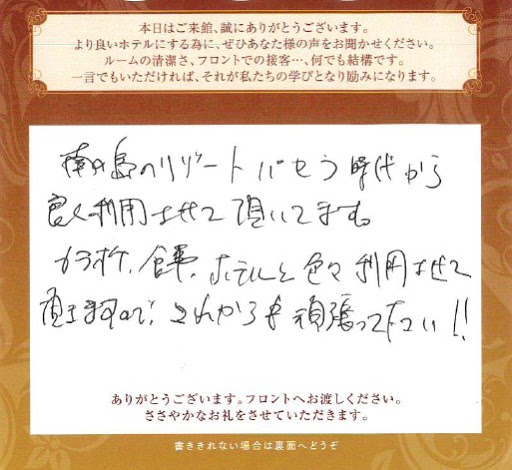 本日はご来館、誠にありがとうございます。
より良いホテルにする為に、ぜひあなた様の声をお聞かせください。
ルームの清潔さ、フロントでの接客…、何でも結構です。
一言でもいただければ、それが私たちの学びとなり励みになります。
南の島のリゾート バセラ時代から
良く利用させて頂いてます。
カラオケ、食事、ホテルと色々利用させて
頂きますので、これからも頑張って下さい!!
ありがとうございます。フロントへお渡しください。
ささやかなお礼をさせていただきます。
書ききれない場合は裏面へどうぞ